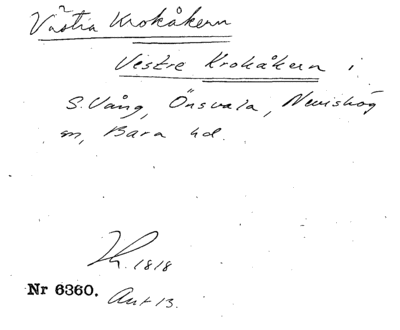 Västra Krokåkern
Vestre Krokåkern i
S. Vång, Önsvala, Nevishög
sn, Bara hd.
1818
Nr 6360. Akt 13.